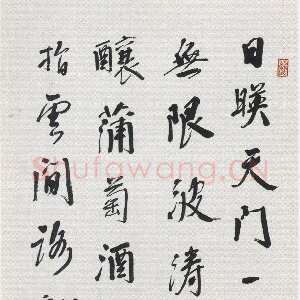 日暎天门一
無限波涛
釀蒲萄酒
指雲间路
Shufawang.CN